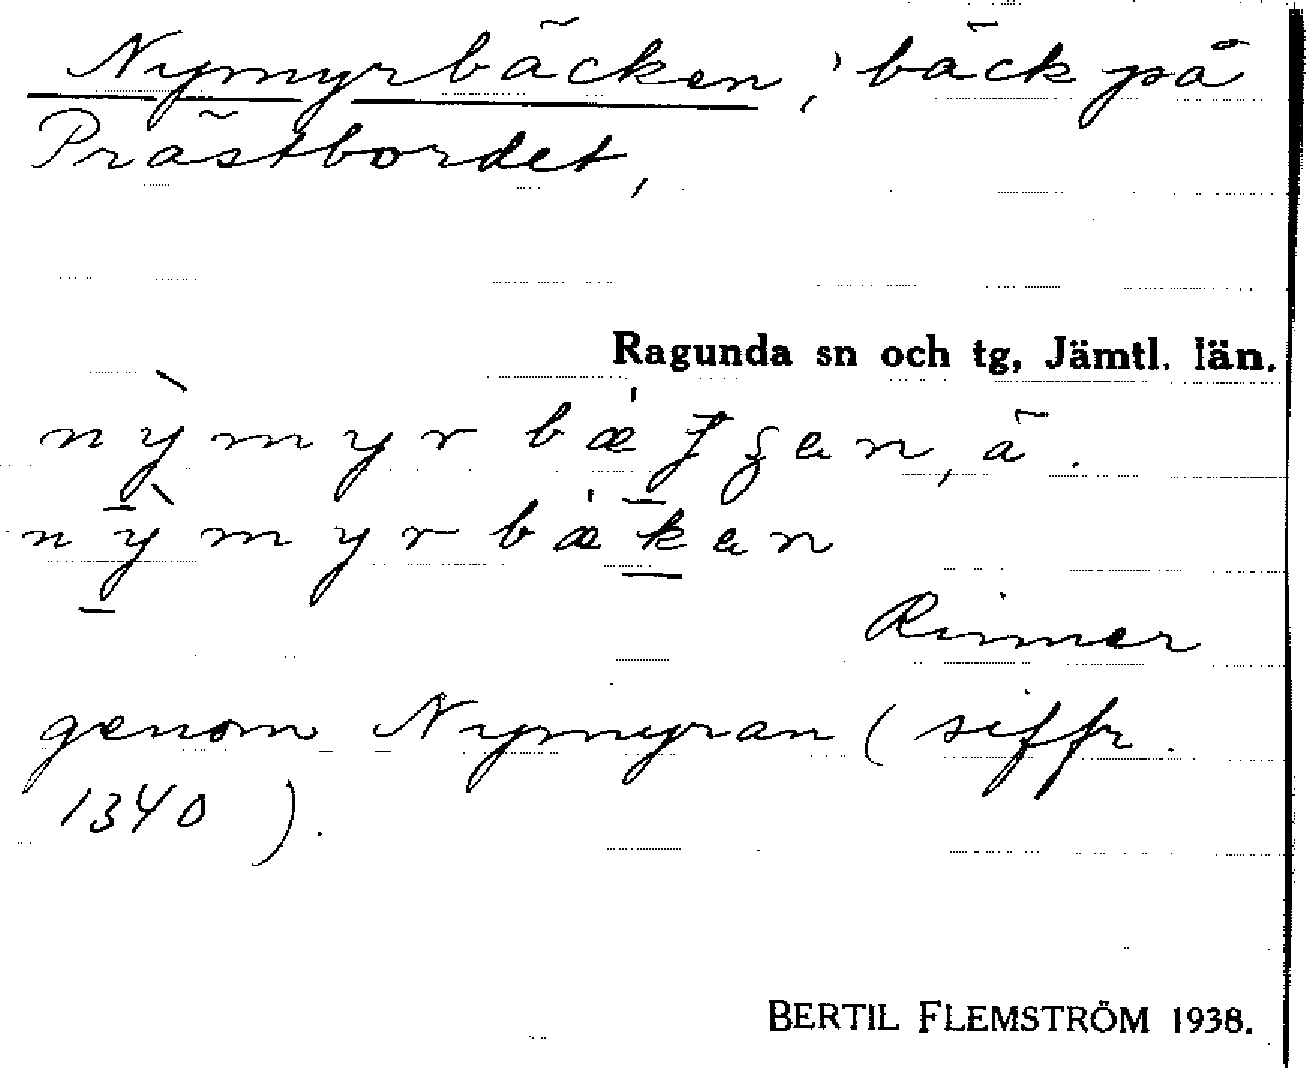 Nymyrbäcken, bäck på
Prästbordet,
Ragunda sn och tg, Jämtl. län.
nỳmyrbæʹ en, ä.
nỳmyrbæʹken
Rinner
genom Nymyran (siffr.
1340).
BERTIL FLEMSTRÖM 1938.